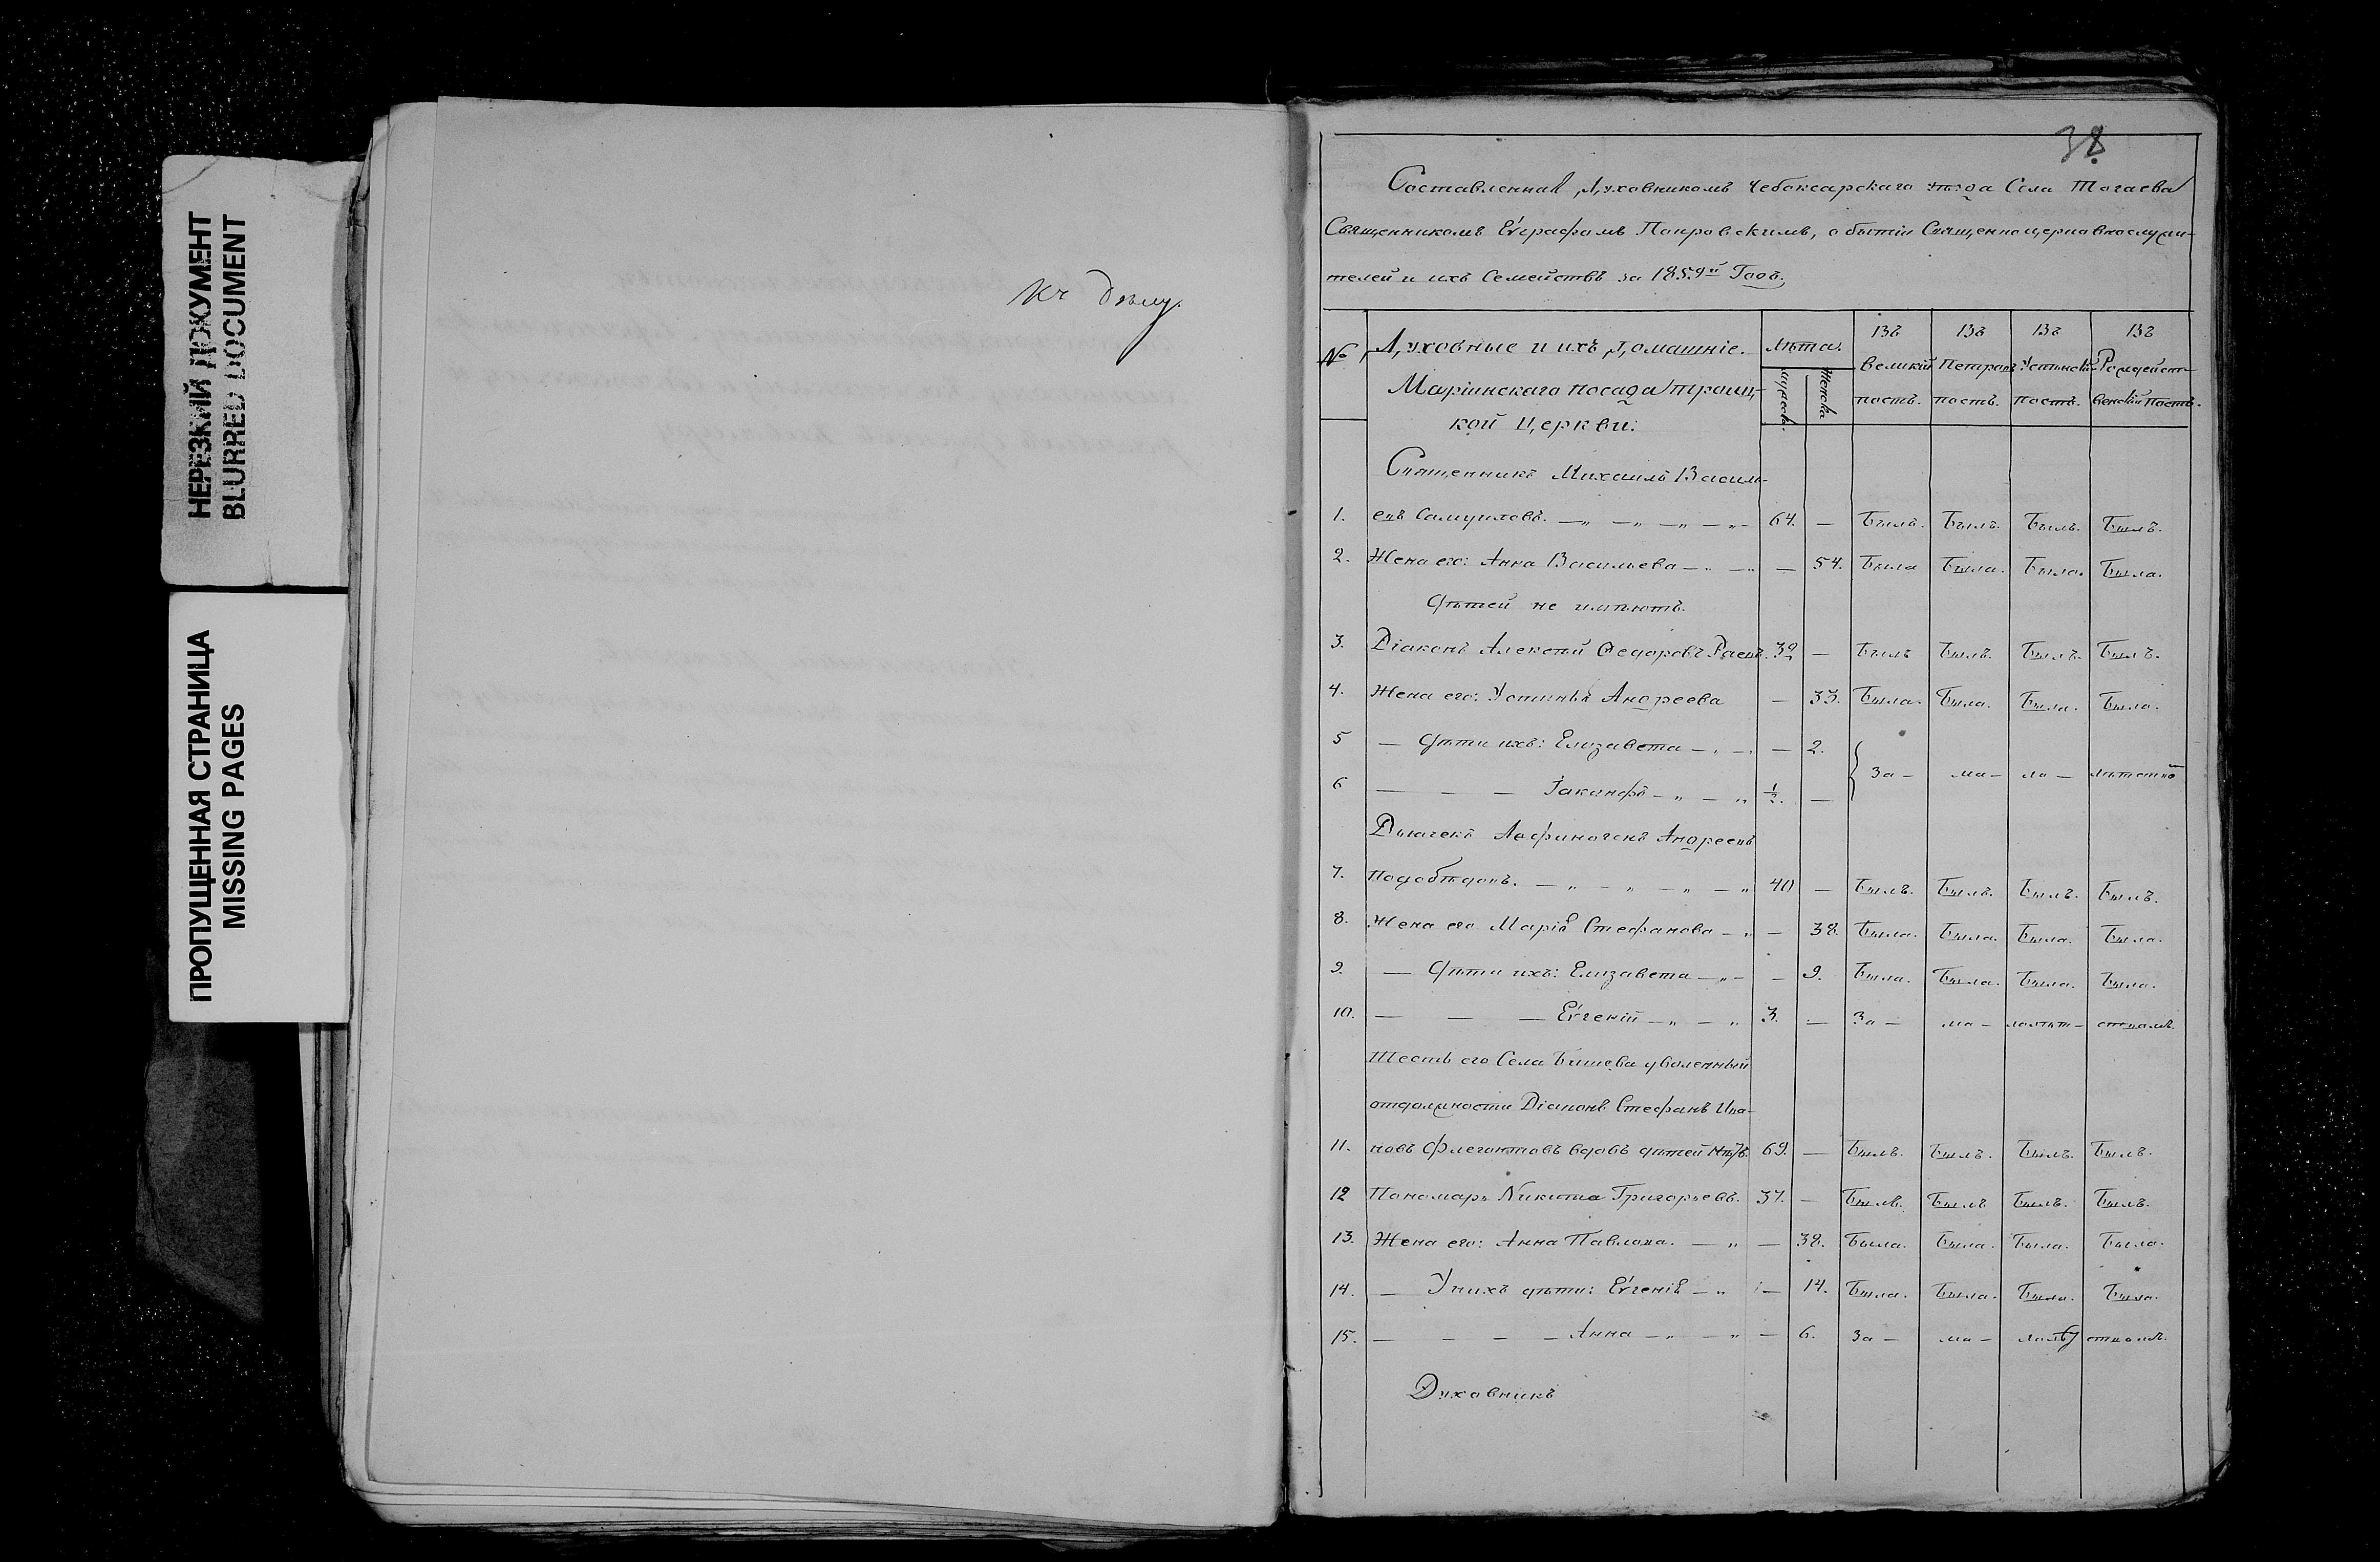 НЕРЕЗКИЙ ДОКУМЕНТ
BLURRED DOCUMENT
ПРОПУЩЕННАЯ СТРАНИЦА
MISSING PAGES
Къ дѣлу.
38.
Составленная Духовникомъ Чебоксарскаго уѣзда Села Тогаева
Священникомъ Еѵграфомъ Покровскимъ, о бытіи Священноцерковнослужи-
телей и ихъ Семействъ за 1859й Годъ.
№ Духовные и ихъ домашніе. Лѣта. Въ Въ Въ Въ
Маріинскаго посада троиц- мужеска. Женска великій Петровъ Успенскій Рождест-
кой Церкви: постъ. постъ. постъ. венскій постъ.
Священникъ Михаилъ Василь-
1. евъ Самуиловъ. — „ — „ — „ — „ — 64. — Былъ. Былъ. Былъ. Былъ.
2. Жена его: Анна Васильева — „ — „ — 54. Была Была. Была. Была.
Дѣтей не имѣютъ.
3. Діаконъ Алексѣй Ѳедоровъ Раевъ. 39 — Былъ Былъ. Былъ. Былъ.
4. Жена его: Устинья Андреева — 33. Была. Была. Была. Была.
5 — Дѣти ихъ: Елизавета — „ — „ — 2.
За — ма — ло — лѣтствомъ
6 — — — Іакинфъ — „ — „ ½. —
Дьячекъ Аѳиногенъ Андреевъ
7. Подобѣдовъ. — „ — „ — „ — „ 40 — Былъ. Былъ. Былъ. Былъ.
8. Жена его Марія Стефанова — „ — 38. Была. Была. Была. Была.
9. — Дѣти ихъ: Елизавета — „ — — 9. Была. Была. Была. Была.
10. — — — Еѵгеній — „ — „ 3. — За — ма — лолѣт — ствомъ.
Тесть его Села Бишева уволенный
отдолжности Діаконъ Стефанъ Ива-
11. новъ Флегонтовъ вдовъ дѣтей нѣтъ. 69. — Былъ. Былъ. Былъ. Былъ.
12 Пономарь Никита Григорьевъ. 37. — Былъ. Былъ Былъ. Былъ.
13. Жена его: Анна Павлова. — „ — 38. Была. Была. Была. Была.
14. — Унихъ дѣти: Еѵгенія — „ — 14. Была. Была. Была. Была.
15. — — — — Анна — „ — „ — 6. За — ма — лолѣт ствомъ.
Духовникъ